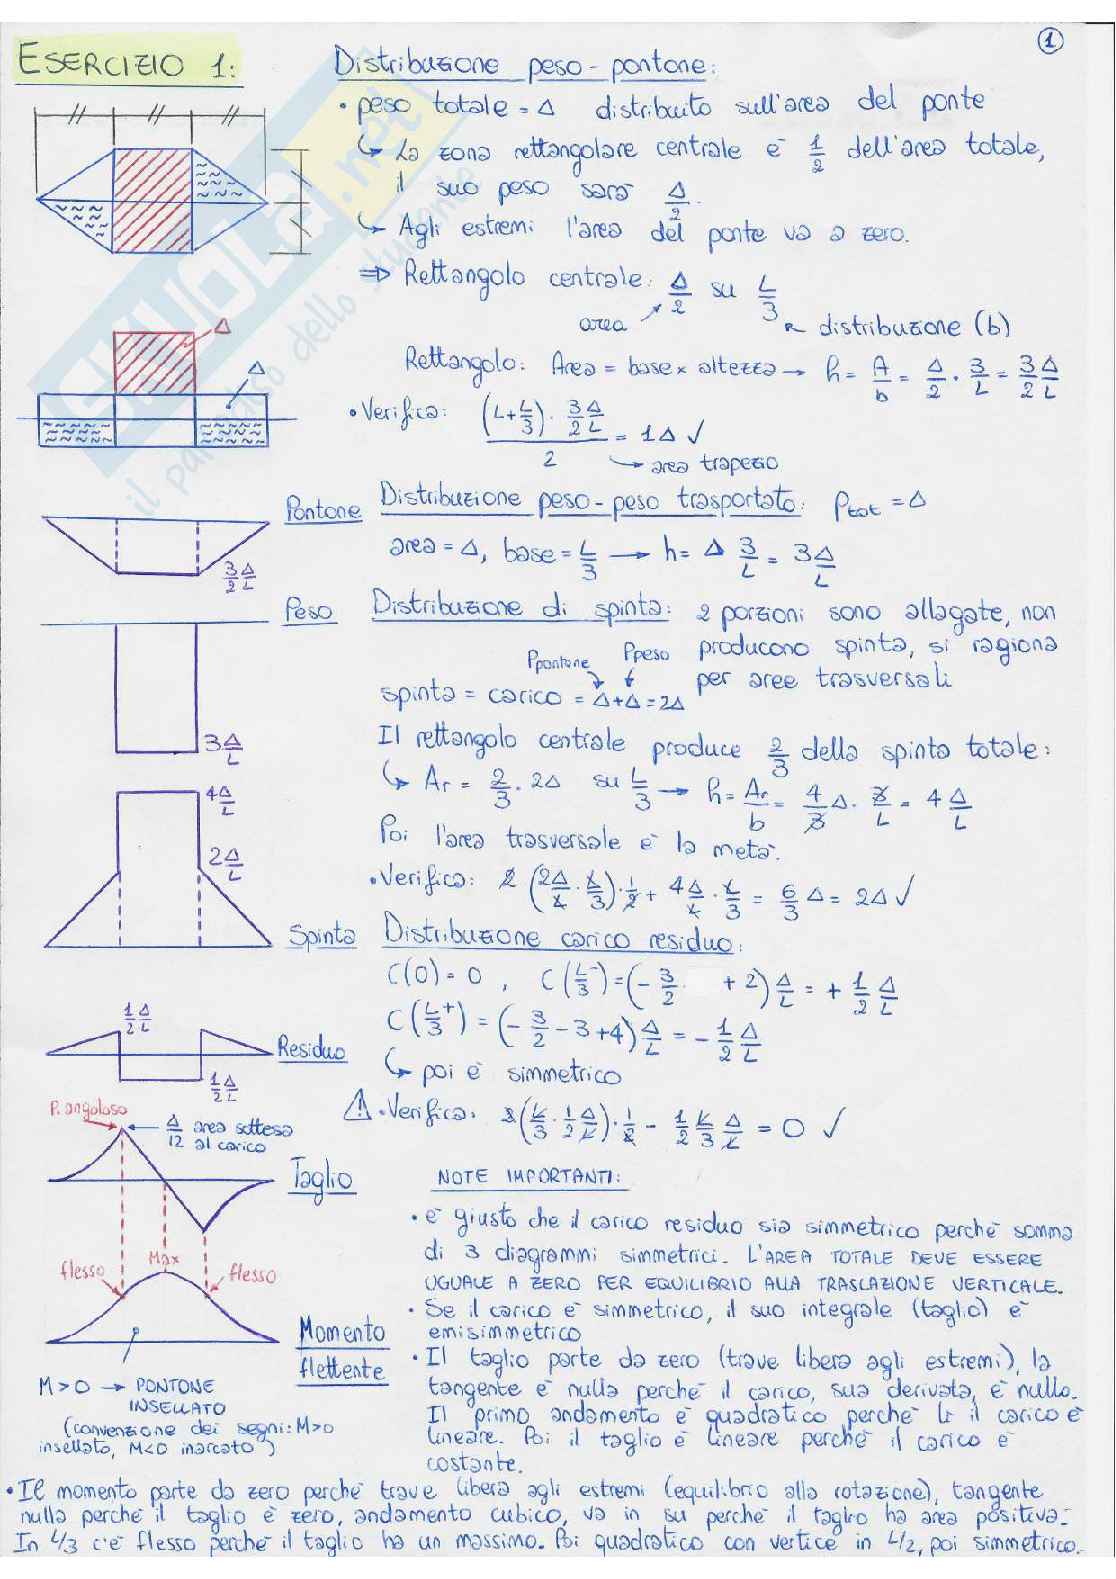 1
ESERCIZIO 1:
Distribuzione peso-pontone:
• peso totale = Δ distribuito sull'area del ponte
↳ La zona rettangolare centrale è 1/2 dell'area totale,
il suo peso sarà Δ/2.
↳ Agli estremi l'area del ponte va a zero.
⇒ Rettangolo centrale: Δ/2 su L/3
area distribuzione (b)
Rettangolo: Area = base × altezza → h = A/b = Δ/2 · 3/L = 3/2 Δ/L
Δ
Δ
• Verifica: (L+L/3) · 3/2 Δ/L / 2 = 1Δ ✓
area trapezio
Pontone
3/2 Δ/L
Distribuzione peso-peso trasportato: Ptot = Δ
area = Δ, base = L/3 → h = Δ 3/L = 3Δ/L
Peso
3Δ/L
Distribuzione di spinta: 2 porzioni sono allagate, non
producono spinta, si ragiona
per aree trasversali
Ppontone Ppeso
spinta = carico = Δ+Δ = 2Δ
Il rettangolo centrale produce 2/3 della spinta totale:
↳ Ar = 2/3 · 2Δ su L/3 → h = Ar/b = 4/3 Δ · 3/L = 4 Δ/L
Poi l'area trasversale è la metà.
• Verifica: 2 (2Δ/L · L/3) · 1/2 + 4Δ/L · L/3 = 6/3 Δ = 2Δ ✓
4Δ/L
2Δ/L
Spinta
Distribuzione carico residuo:
C(0) = 0 , C(L/3⁻) = (-3/2 + 2) Δ/L = + 1/2 Δ/L
C(L/3⁺) = (-3/2 - 3 + 4) Δ/L = - 1/2 Δ/L
↳ poi è simmetrico
1/2 Δ/L
Residuo
1/2 Δ/L
⚠ • Verifica: 2(L/3 · 1/2 Δ/L) · 1/2 - 1/2 L/3 Δ/L = 0 ✓
P. angoloso
Δ/12 area sottesa
al carico
Taglio
Max
flesso
flesso
Momento
flettente
M>0 → PONTONE
INSELLATO
(convenzione dei segni: M>0
insellato, M<0 inarcato)
NOTE IMPORTANTI:
• è giusto che il carico residuo sia simmetrico perchè somma
di 3 diagrammi simmetrici. L'AREA TOTALE DEVE ESSERE
UGUALE A ZERO PER EQUILIBRIO ALLA TRASLAZIONE VERTICALE.
• Se il carico è simmetrico, il suo integrale (taglio) è
emisimmetrico
• Il taglio parte da zero (trave libera agli estremi), la
tangente è nulla perchè il carico, sua derivata, è nullo.
Il primo andamento è quadratico perchè lì il carico è
lineare. Poi il taglio è lineare perchè il carico è
costante.
• Il momento parte da zero perchè trave libera agli estremi (equilibrio alla rotazione), tangente
nulla perchè il taglio è zero, andamento cubico, va in su perchè il taglio ha area positiva.
In L/3 c'è flesso perchè il taglio ha un massimo. Poi quadratico con vertice in L/2, poi simmetrico.
SKUOLA.net
il paradiso dello studente